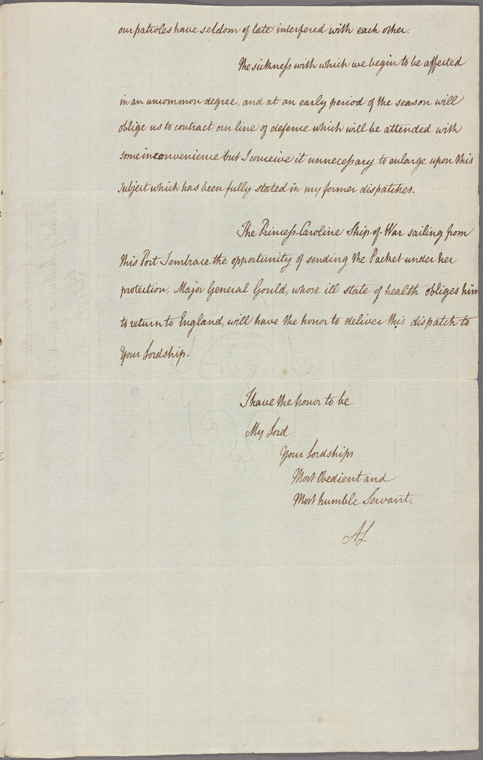 our patroles have seldom of late interfered with each other.
The sickness with which we begin to be affected
in an uncommon degree, and at an early period of the season will
oblige us to contract our line of defence which will be attended with
some inconvenience but I conceive it unnecessary to enlarge upon this
subject which has been fully stated in my former dispatches.
The Princess Caroline Ship of War sailing from
this Port I embrace the opportunity of sending the Packet under her
protection. Major General Gould, whose ill state of health obliges him
to return to England, will have the honor to deliver this dispatch to
Your Lordship.
I have the honor to be
My Lord
Your Lordships
Most Obedient and
Most humble Servant.
AL.